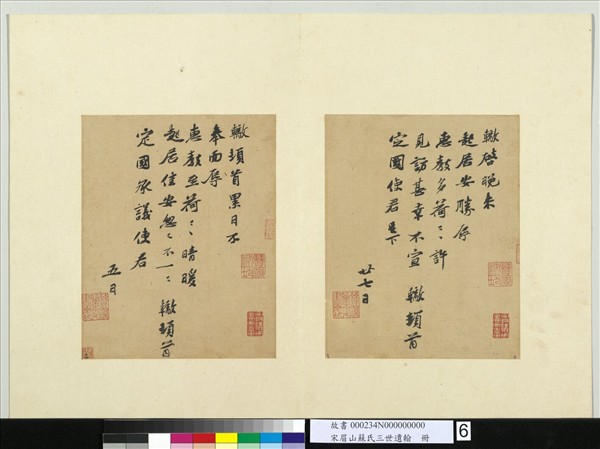 轍啓晚來
起居安勝辱
惠教多荷〻許
見訪甚幸不宣
轍頓首
定國使君足下
廿七日
轍頓首累日不
奉面辱
惠教至荷〻晴暖
起居佳安怱〻不一〻
轍頓首
定國承議使君
五日
故書 000234N000000000
宋眉山蘇氏三世遺翰 冊
6